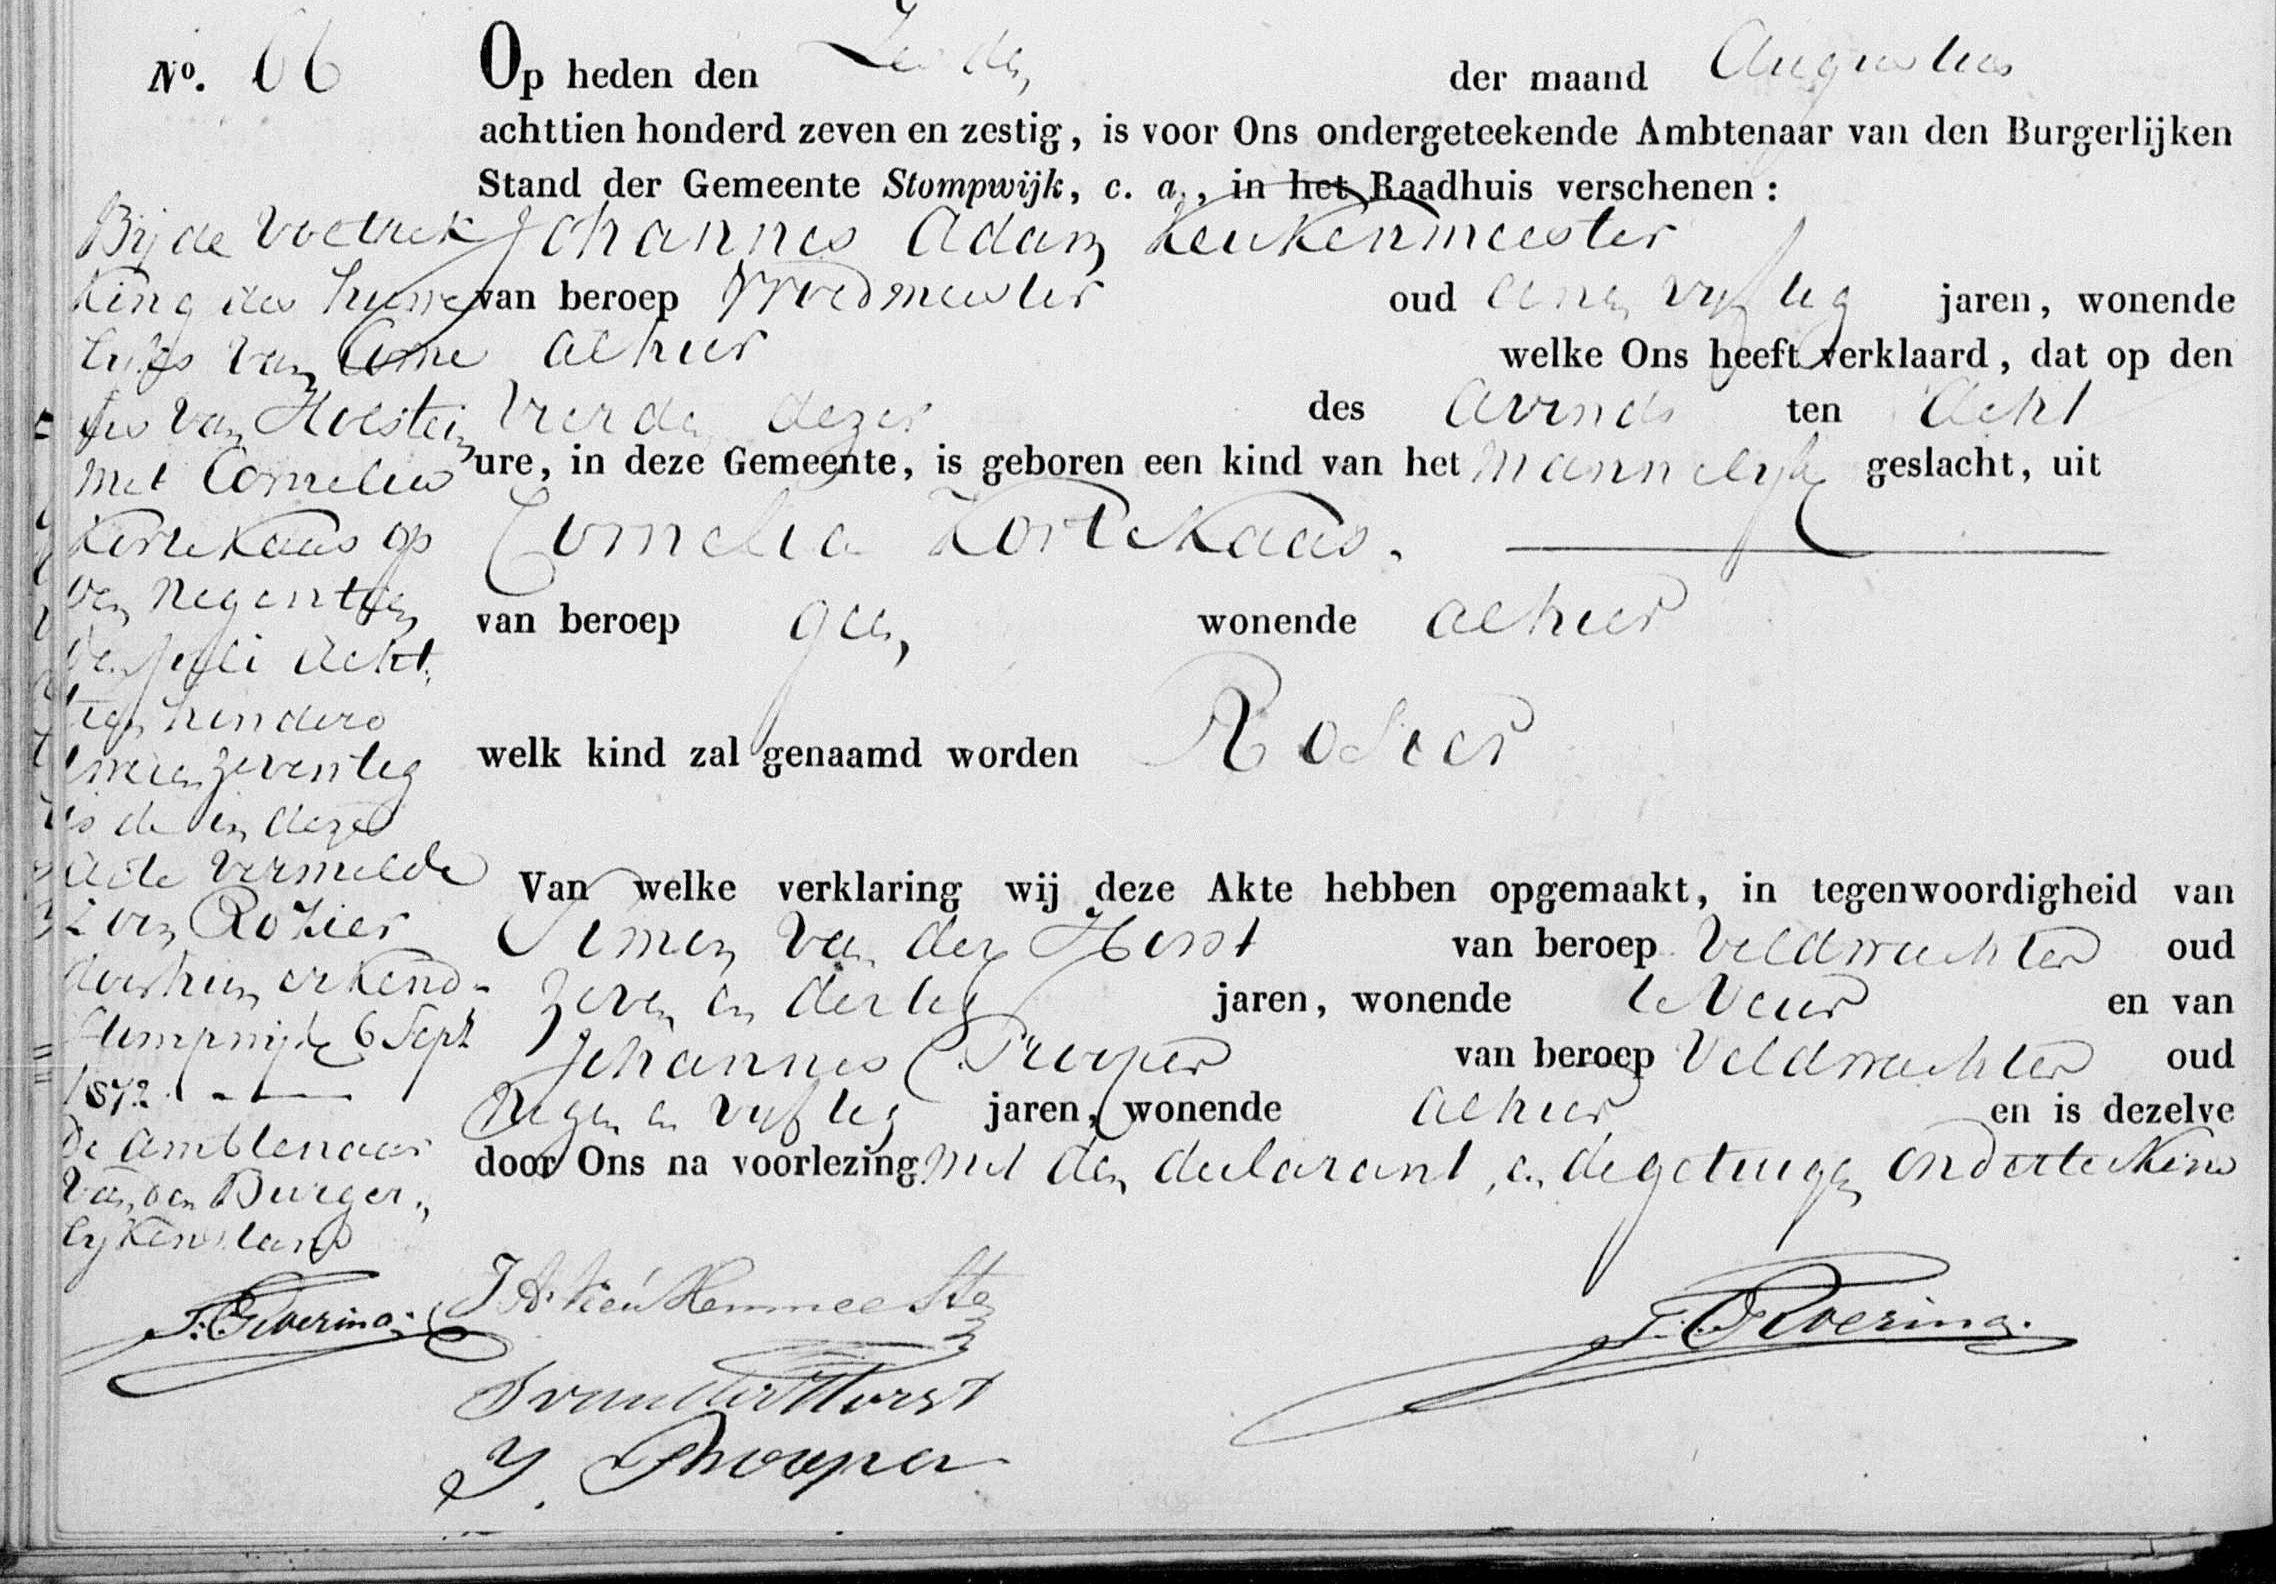 No. 66 Op heden den Zesden der maand Augustus
achttien honderd zeven en zestig, is voor Ons ondergeteekende Ambtenaar van den Burgerlijken
Stand der Gemeente Stompwijk, c. a., in het Raadhuis verschenen:
Johannes Adam Keukenmeester
van beroep Vroedmeester oud een en vyftig jaren, wonende
alhier welke Ons heeft verklaard, dat op den
vierden dezer des avonds ten acht
ure, in deze Gemeente, is geboren een kind van het mannelyk geslacht, uit
Cornelia Kortekaas.
van beroep geen wonende alhier
welk kind zal genaamd worden Rosier
Van welke verklaring wij deze Akte hebben opgemaakt, in tegenwoordigheid van
Simon van der Horst van beroep Veldwachter oud
zeven en dertig jaren, wonende te Veur en van
Johannes Prooper van beroep Veldwachter oud
negen en vyftig jaren, wonende alhier en is dezelve
door Ons na voorlezing met den declarant en de getuigen onderteekend
Bij de voltrek
king des huwe
lyks van
van Holstein
met Cornelia
Kortekaas op
den negentien
den Juli acht
tien honderd
twee en zeventig
is de in deze
acte vermelde
zoon Rozier
door hun erkend.
Stompwijk 6 Sept
1872.
De Ambtenaar
van den Burger,,
lyken stand
J. A. Keukenmeester
S van der Horst
J. Prooper